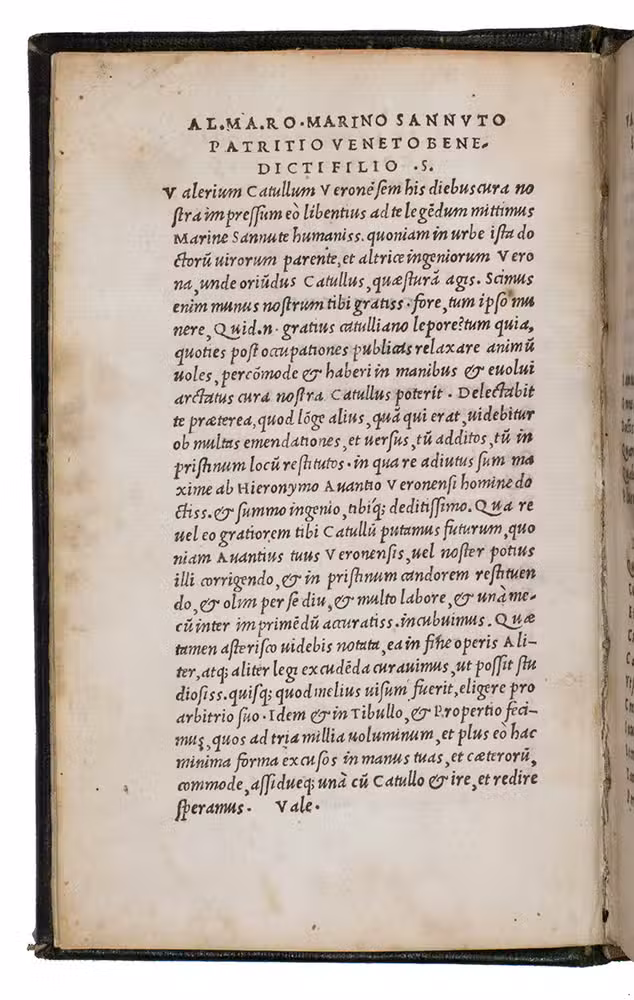 AL.MA.RO.MARINO SANNVTO
PATRITIO VENETO BENE-
DICTI FILIO .S.
V alerium Catullum Veronēsem his diebus cura no
stra impressum eò libentius ad te legēdum mittimus
Marine Sannute humaniss. quoniam in urbe ista do
ctorū uirorum parente, et altrice ingeniorum Vero
na, unde oriūdus Catullus, quæsturā agis. Scimus
enim munus nostrum tibi gratiss. fore, tum ipso mu
nere, Quid.n. gratius catulliano lepore? tum quia,
quoties post occupationes publicas relaxare animū
uoles, percōmode & haberi in manibus & euolui
arctatus cura nostra Catullus poterit. Delectabit
te præterea, quod lōge alius, quā qui erat, uidebitur
ob multas emendationes, et uersus, tū additos, tū in
pristinum locū restitutos. in qua re adiutus sum ma
xime ab Hieronymo Auantio Veronensi homine do
ctiss. & summo ingenio, tibiq; deditissimo. Qua re
uel eo gratiorem tibi Catullū putamus futurum, quo
niam Auantius tuus Veronensis, uel noster potius
illi corrigendo, & in pristinum candorem restituen
do, & olim per se diu, & multo labore, & unà me-
cū inter imprimēdū accuratiss. incubuimus. Quæ
tamen asterisco uidebis notata, ea in fine operis Ali-
ter, atq; aliter legi excudēda curauimus, ut possit stu
diosiss. quisq; quod melius uisum fuerit, eligere pro
arbitrio suo. Idem & in Tibullo, & Propertio feci-
mus, quos ad tria millia uoluminum, et plus eò hac
minima forma excusos in manus tuas, et cæterorū,
commode, assidueq; unà cū Catullo & ire, et redire
speramus. Vale.